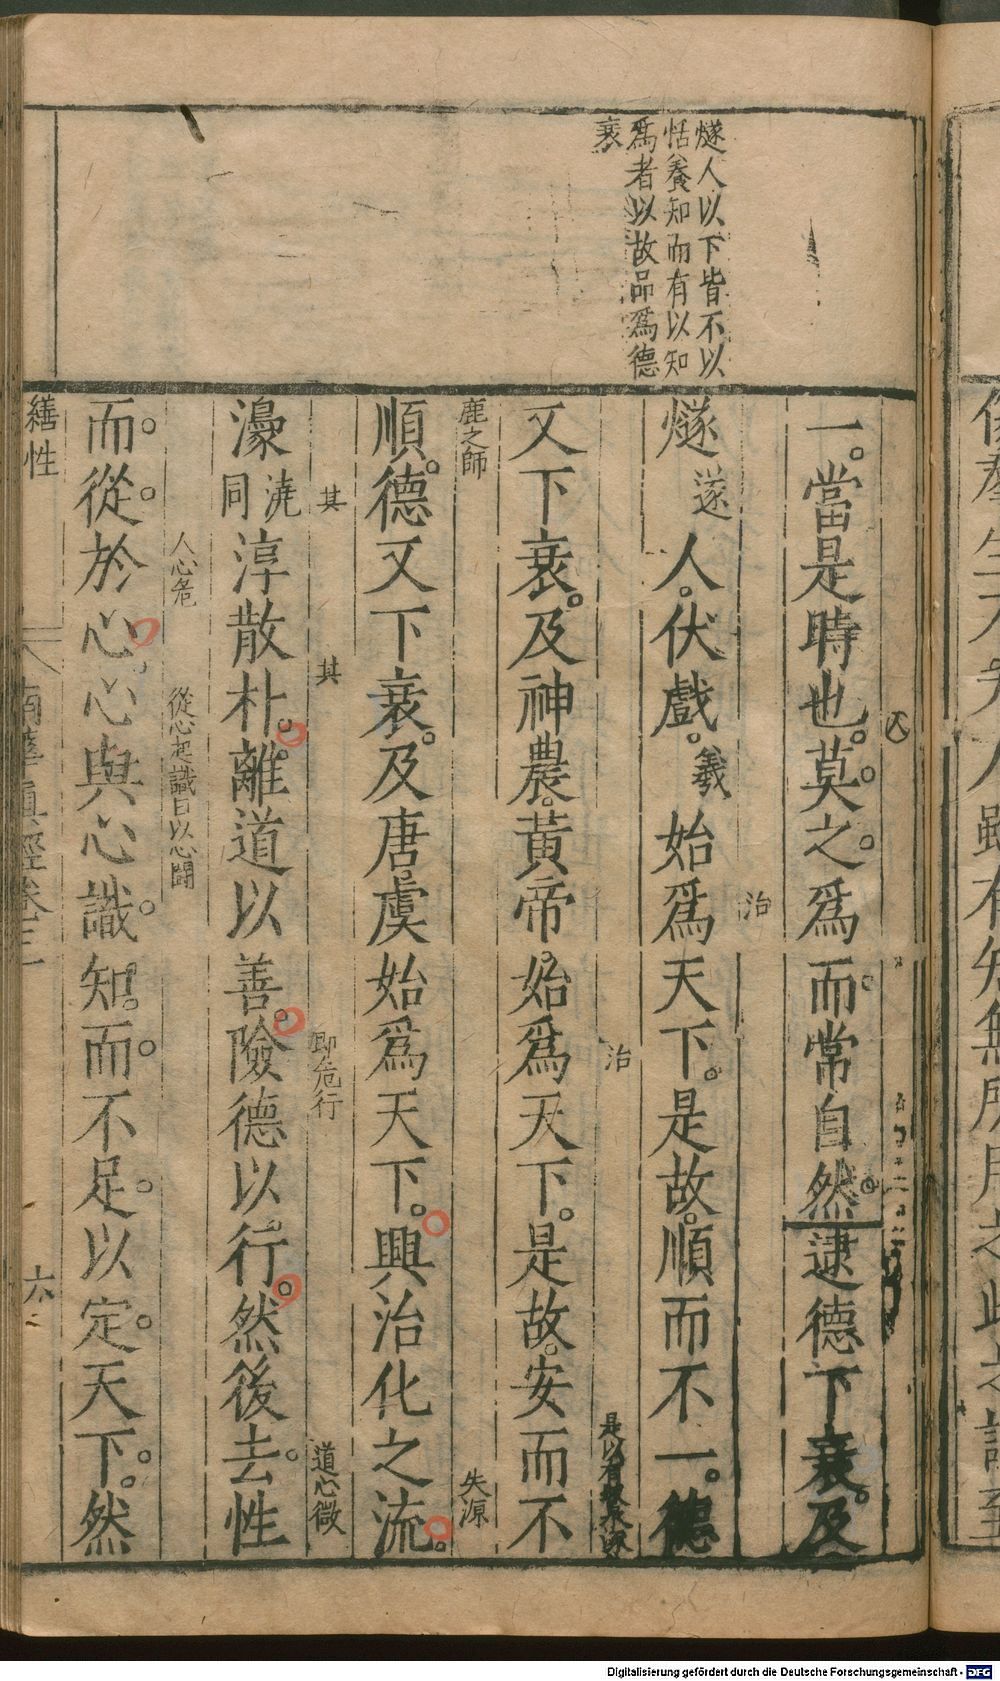 燧人以下皆不以
恬養知而有以知
爲者以故品爲德
衰
一。當是時也。莫之爲而常自然。逮德下衰。及
治
燧遂人。伏戲。羲始爲天下。是故。順而不一。德
治
又下衰。及神農。黃帝。始爲天下。是故。安而不
鹿之師
失源
順。德又下衰。及唐虞始爲天下。興治化之流。
其
其
即危行
道心微
濠澆同淳散朴。離道以善。險德以行。然後去性
人心危
從心起識日以心鬪
而從於心。心與心識知。而不足以定天下。然
繕性
南華真經卷三
六
Digitalisierung gefördert durch die Deutsche Forschungsgemeinschaft - DFG